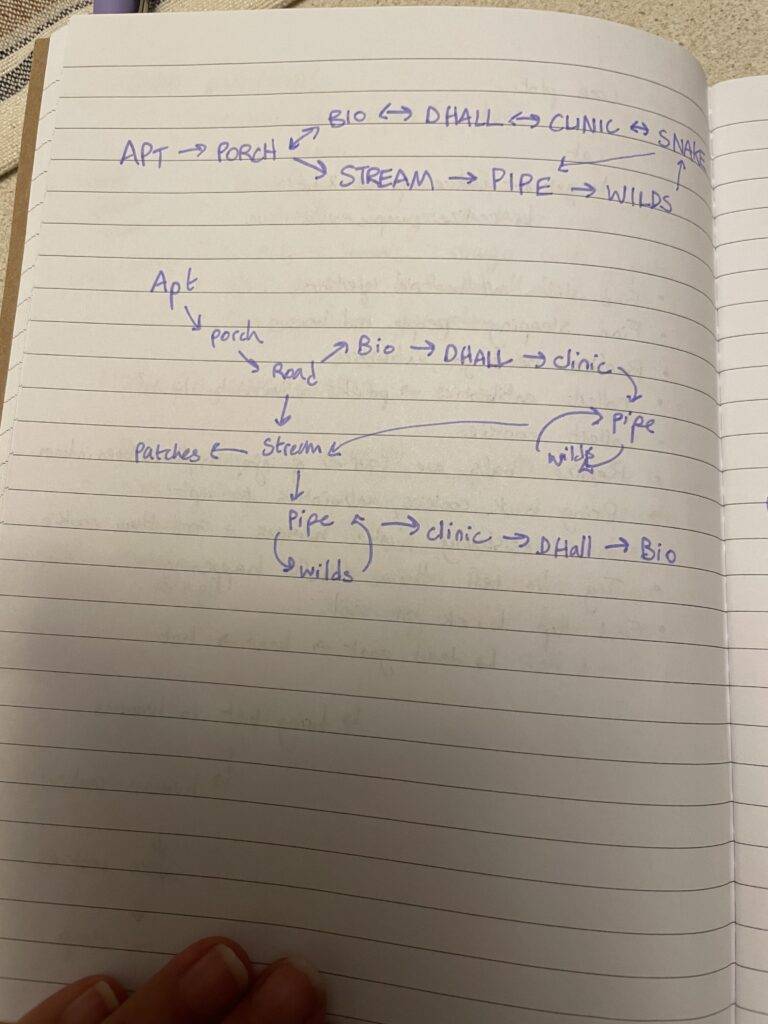 BIO ↔ DHALL ↔ CLINIC ↔ SNAKE
APT → PORCH
STREAM → PIPE → WILDS
Apt
porch
Road
Bio → DHALL → clinic
pipe
wilds
Patches ← Stream
Pipe → clinic → DHall → Bio
wilds